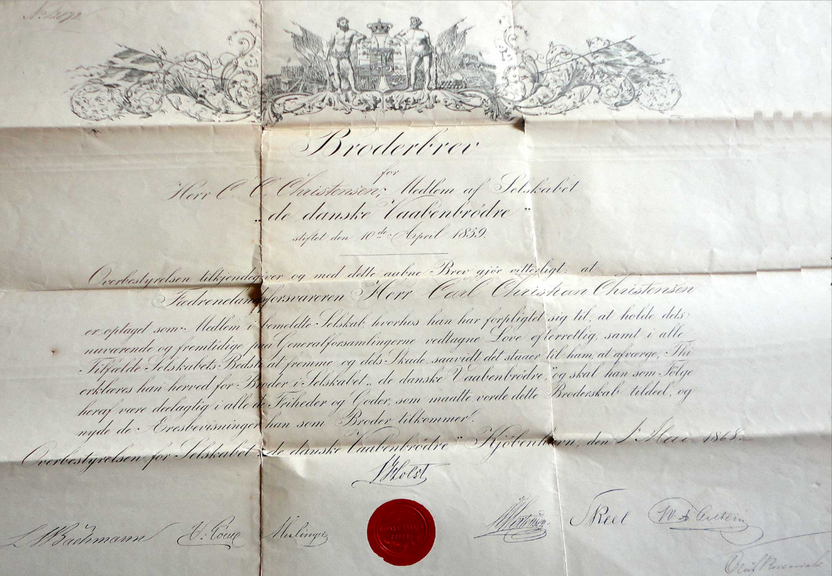 Broderbrev
for
Herr C. C. Christensen, Medlem af Selskabet
"de danske Vaabenbrødre"
stiftet den 10de April 1859.
Overbestyrelsen tilkjendegiver og med dette aabne Brev gjør vitterligt, at
Fædrenelandsforsvareren Herr Carl Christian Christensen
er optaget som Medlem i foremeldte Selskab hvorhos han har forpligtet sig til, at holde dets
nuværende og fremtidige, paa Generalforsamlingerne vedtagne Love efterretlig, samt i alle
Tilfælde Selskabets Bedste at fremme og dets Skade saavidt det staaer til ham, at afværge, Thi
erklæres han herved for Broder i Selskabet „de danske Vaabenbrødre," og skal han som Følge
heraf være deelagtig i alle de Friheder og Goder, som maatte vorde dette Broderskab tildeel, og
nyde de Æresbevisninger han som Broder tilkommer.
Overbestyrelsen for Selskabet „de danske Vaabenbrødre" Kjøbenhavn, den 1868.
Holst
Bachmann
Skeel